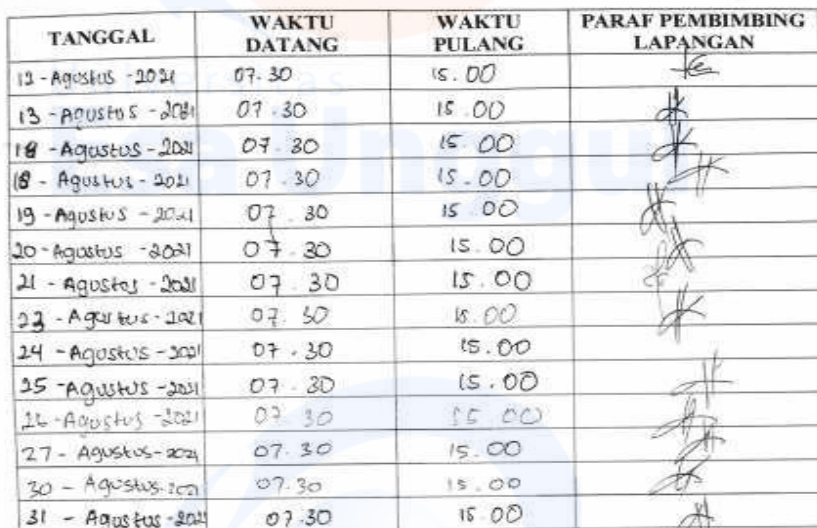 TANGGAL WAKTU DATANG WAKTU PULANG PARAF PEMBIMBING LAPANGAN
12 - Agustus - 2021 07.30 15.00
13 - Agustus - 2021 07.30 15.00
18 - Agustus - 2021 07.30 15.00
18 - Agustus - 2021 07.30 15.00
19 - Agustus - 2021 07.30 15.00
20 - Agustus - 2021 07.30 15.00
21 - Agustus - 2021 07.30 15.00
23 - Agustus - 2021 07.30 15.00
24 - Agustus - 2021 07.30 15.00
25 - Agustus - 2021 07.30 15.00
26 - Agustus - 2021 07.30 15.00
27 - Agustus - 2021 07.30 15.00
30 - Agustus - 2021 07.30 15.00
31 - Agustus - 2021 07.30 15.00
Universitas
Esa Unggul